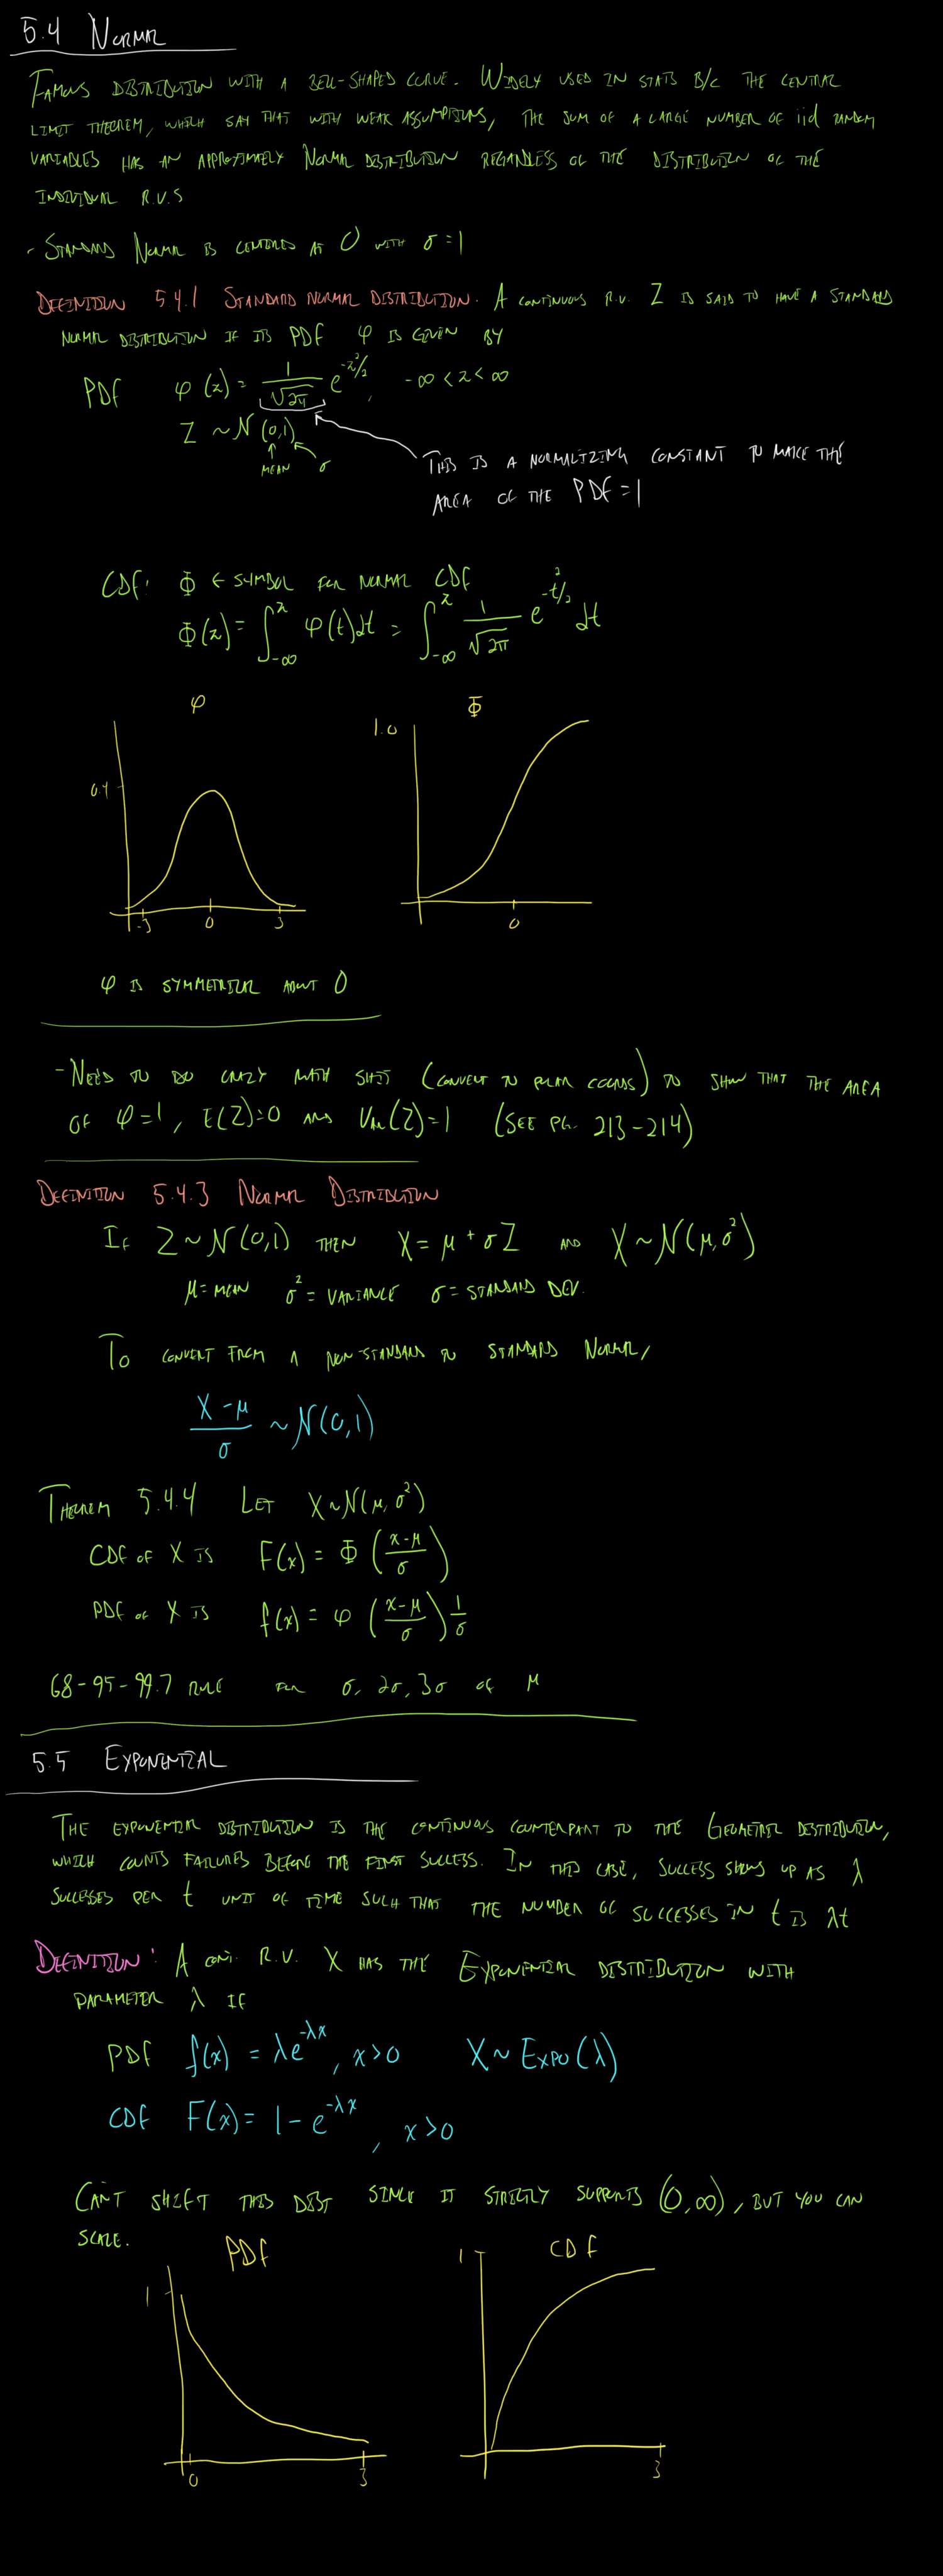 5.4 NORMAL
FAMOUS DISTRIBUTION WITH A BELL-SHAPED CURVE. WIDELY USED IN STATS B/C THE CENTRAL
LIMIT THEOREM, WHICH SAY THAT WITH WEAK ASSUMPTIONS, THE SUM OF A LARGE NUMBER OF iid RANDOM
VARIABLES HAS AN APPROXIMATELY NORMAL DISTRIBUTION REGARDLESS OF THE DISTRIBUTION OF THE
INDIVIDUAL R.V.S
- STANDARD NORMAL IS CENTERED AT 0 WITH σ=1
DEFINITION 5.4.1 STANDARD NORMAL DISTRIBUTION. A CONTINUOUS R.V. Z IS SAID TO HAVE A STANDARD
NORMAL DISTRIBUTION IF ITS PDF φ IS GIVEN BY
PDF φ(z) = 1/√2π e^(-z²/2), -∞ < z < ∞
Z ~ N(0,1)
MEAN σ
THIS IS A NORMALIZING CONSTANT TO MAKE THE
AREA OF THE PDF = 1
CDF: Φ ← SYMBOL FOR NORMAL CDF
Φ(z) = ∫_{-∞}^{z} φ(t)dt = ∫_{-∞}^{z} 1/√2π e^(-t²/2) dt
φ Φ
0.4 1.0
-3 0 3 0
φ IS SYMMETRICAL ABOUT 0
- NEED TO DO CRAZY MATH SHIT (CONVERT TO POLAR COORDS) TO SHOW THAT THE AREA
OF φ=1, E(Z)=0 AND VAR(Z)=1 (SEE PG. 213-214)
DEFINITION 5.4.3 NORMAL DISTRIBUTION
IF Z ~ N(0,1) THEN X = μ + σZ AND X ~ N(μ, σ²)
μ = MEAN σ² = VARIANCE σ = STANDARD DEV.
TO CONVERT FROM A NON-STANDARD TO STANDARD NORMAL,
(X-μ)/σ ~ N(0,1)
THEOREM 5.4.4 LET X ~ N(μ, σ²)
CDF OF X IS F(x) = Φ((x-μ)/σ)
PDF OF X IS f(x) = φ((x-μ)/σ) 1/σ
68-95-99.7 RULE FOR σ, 2σ, 3σ OF μ
5.5 EXPONENTIAL
THE EXPONENTIAL DISTRIBUTION IS THE CONTINUOUS COUNTERPART TO THE GEOMETRIC DISTRIBUTION,
WHICH COUNTS FAILURES BEFORE THE FIRST SUCCESS. IN THIS CASE, SUCCESS SHOWS UP AS λ
SUCCESSES PER t UNIT OF TIME SUCH THAT THE NUMBER OF SUCCESSES IN t IS λt
DEFINITION: A CONT. R.V. X HAS THE EXPONENTIAL DISTRIBUTION WITH
PARAMETER λ IF
PDF f(x) = λe^(-λx), x>0 X ~ EXPO(λ)
CDF F(x) = 1 - e^(-λx), x>0
CAN'T SHIFT THIS DIST SINCE IT STRICTLY SUPPORTS (0,∞), BUT YOU CAN
SCALE.
PDF CDF
1 1
0 3 3